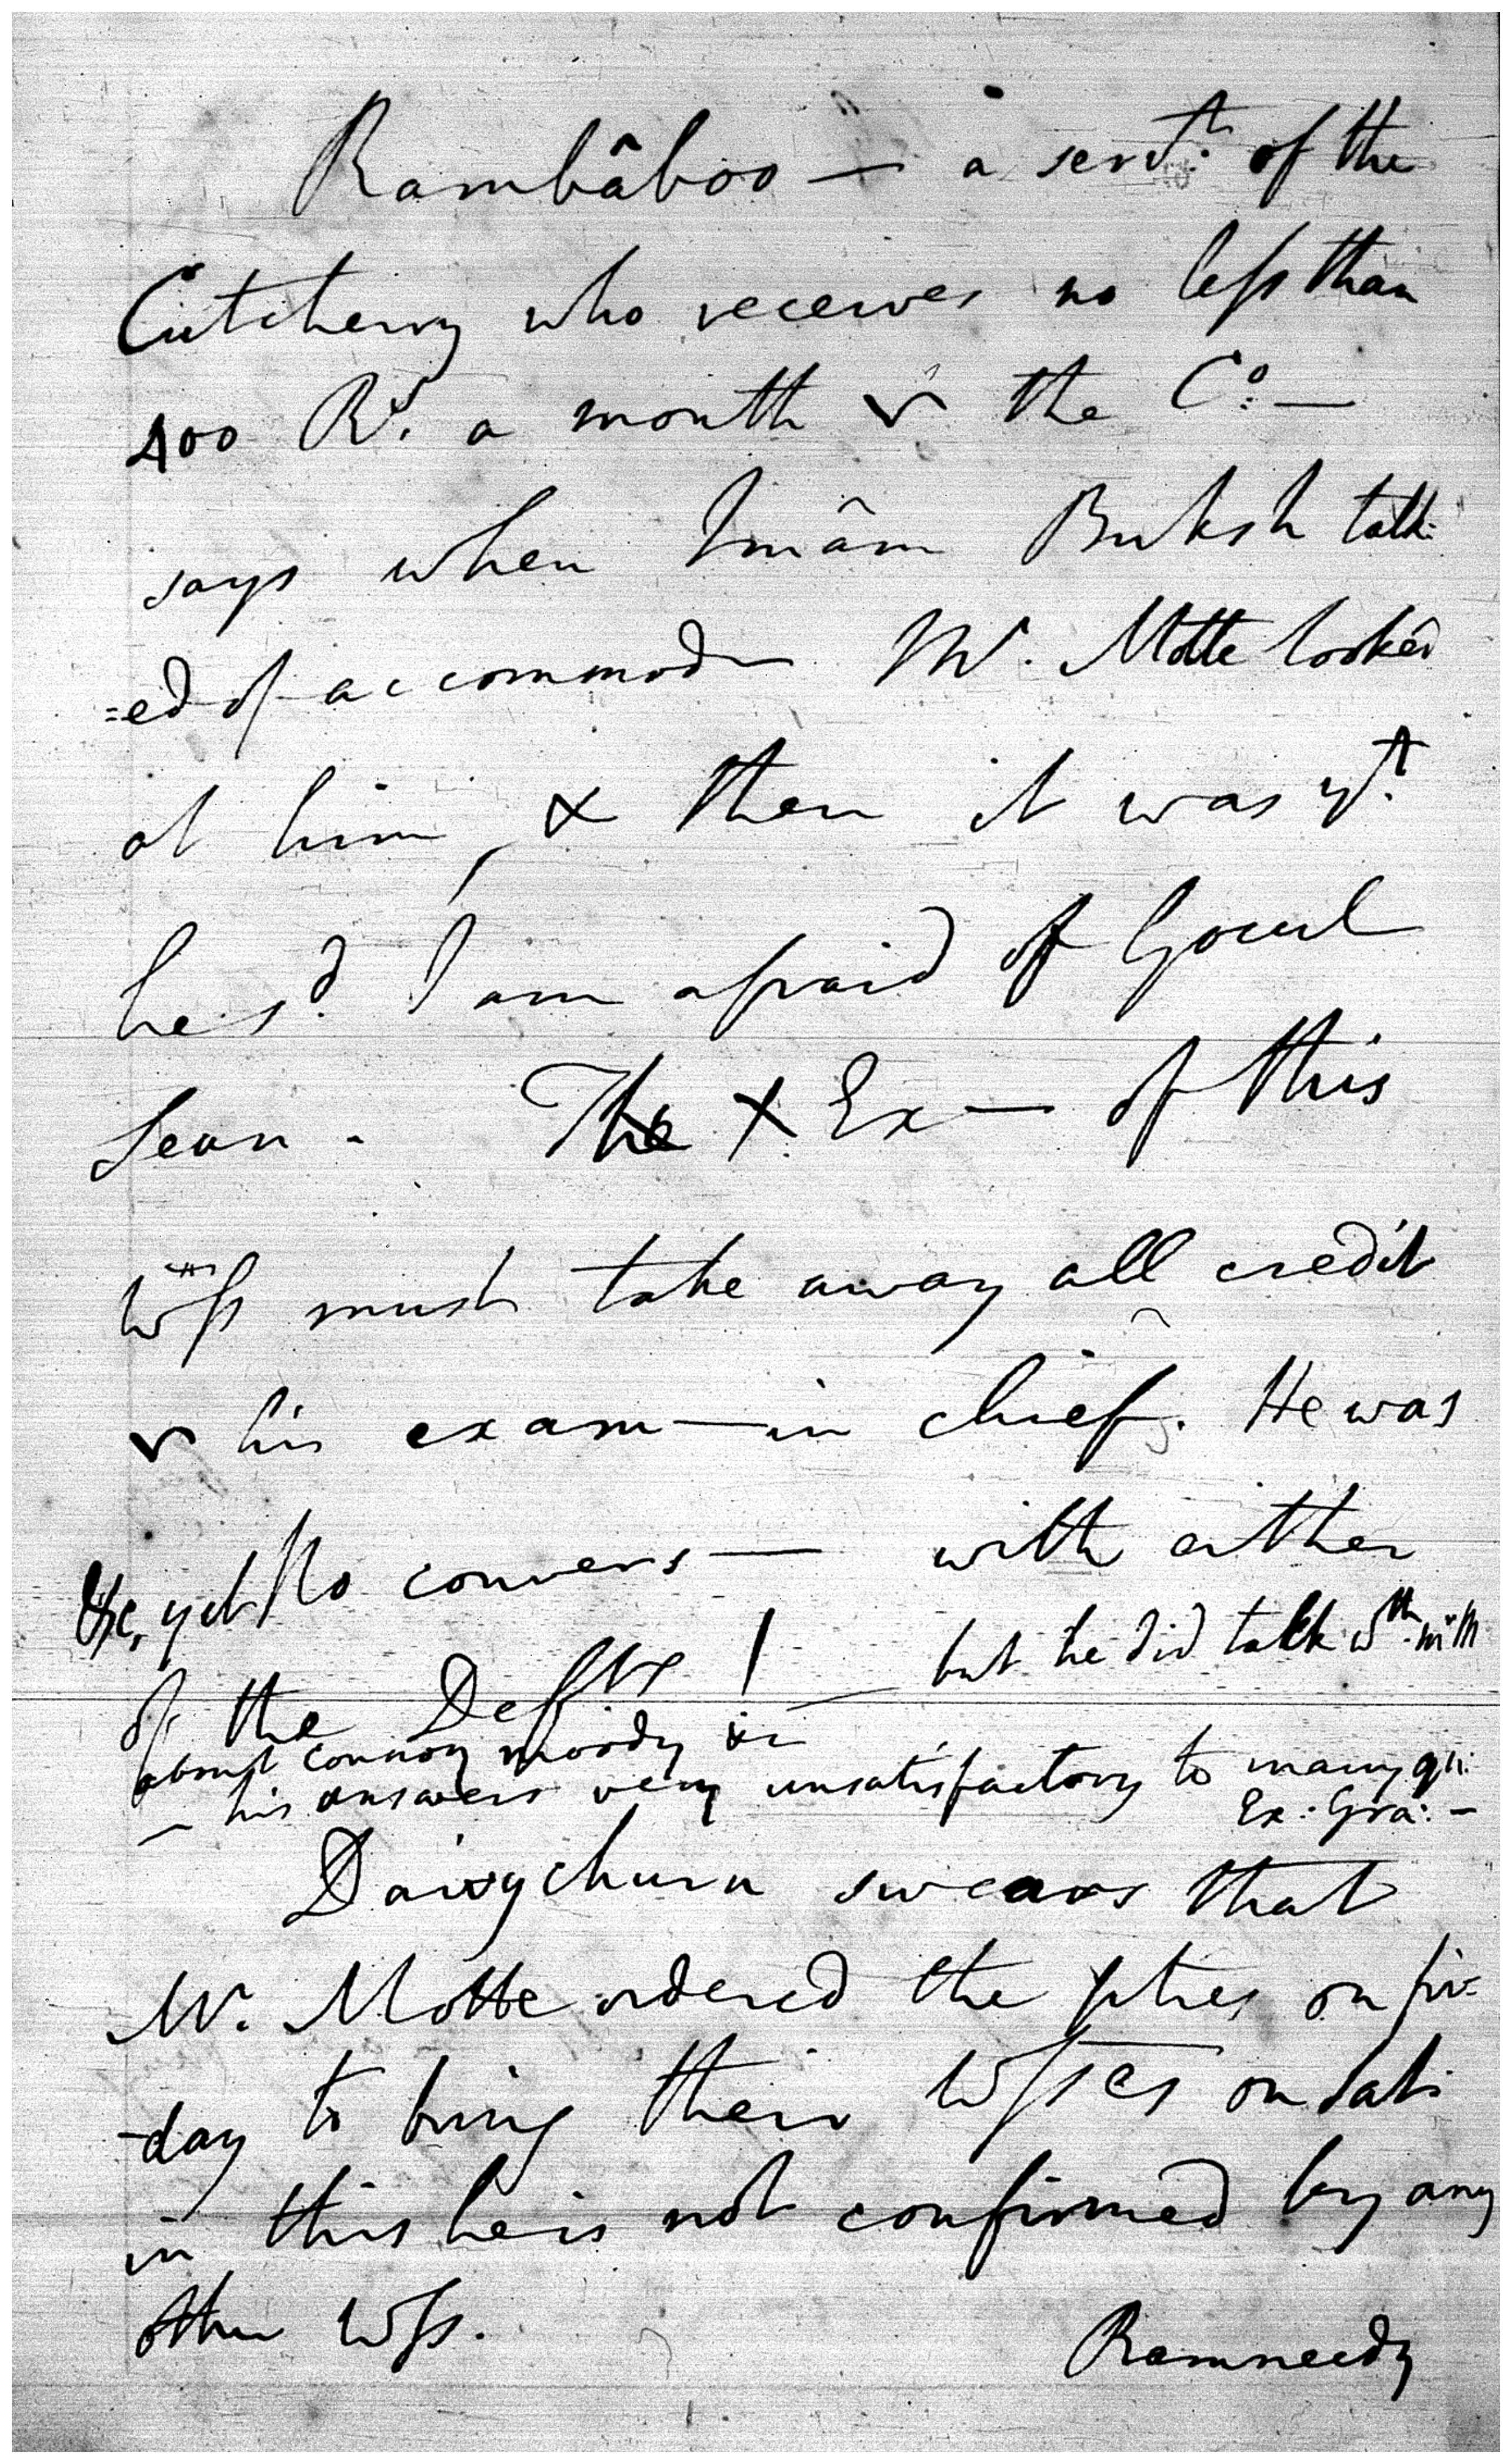 Rambâboo — a servt. of the
Cutcherry who receives no less than
400 Rs. a month the Co: —
says when Imâm Buksh talk-
=ed of accommodn Mr. Motte looked
at him, & then it was yt.
he sd. I am afraid of Gocul
Sean. The X Ex — of this
Wss must take away all credit
his exam — in chief. He was
&c, yet No convers — with either
of the Defts! — but he did talk wth. with
about Connoy moody &c
— his answers very unsatisfactory to many qu:
Ex: Gra: —
Daivychurn swears that
Mr. Motte ordered the pties on fri-
-day to bring their Wsses on Sat:
in this he is not confirmed by any
other Wss.
Ramneedy